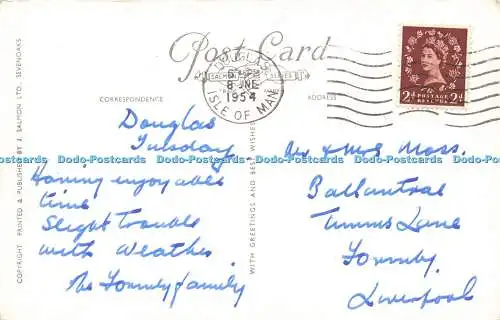 Post Card
SALMON SERIES
DOUGLAS
8 JNE
1954
ISLE OF MAN
2d POSTAGE REVENUE 2d
CORRESPONDENCE
ADDRESS
Douglas
Tuesday
Having enjoyable
time
Slight Trouble
with Weather
The Formby family
Mr & Mrs Moss.
Ballantrae
Timms Lane
Formby
Liverpool
COPYRIGHT PRINTED & PUBLISHED BY J. SALMON LTD. SEVENOAKS
WITH GREETINGS AND BEST WISHES
Dodo-Postcards Dodo-Postcards Dodo-Postcards Dodo-Postcards Dodo-Postcards
Dodo-Postcards Dodo-Postcards Dodo-Postcards Dodo-Postcards Dodo-Postcards